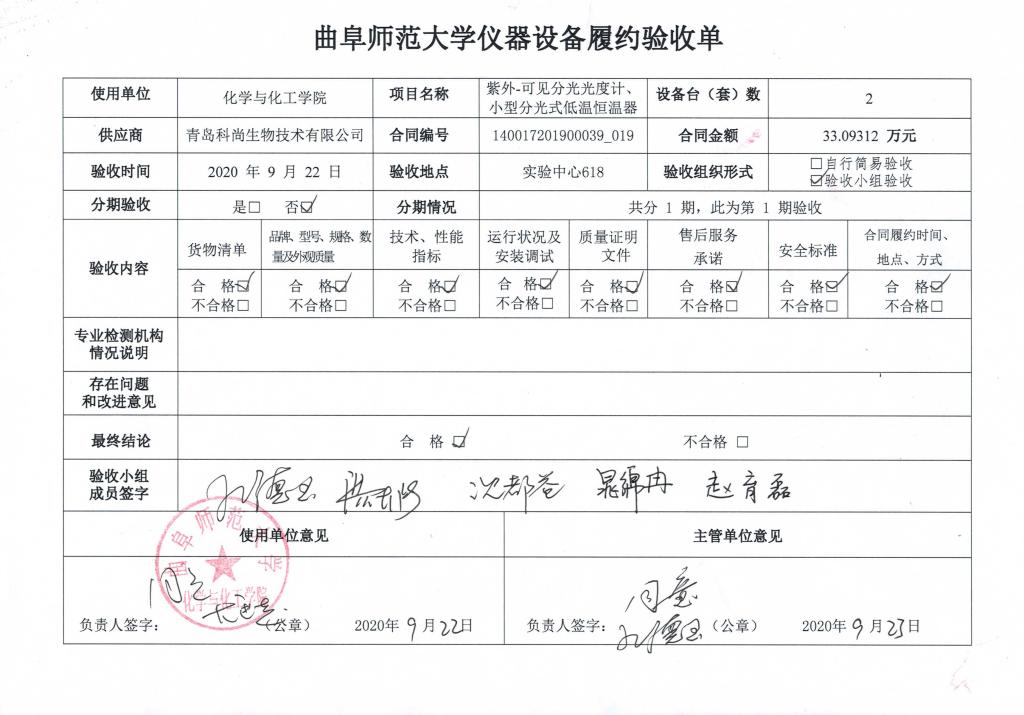 曲阜师范大学仪器设备履约验收单
使用单位 化学与化工学院 项目名称 紫外-可见分光光度计、 设备台（套）数 2
小型分光式低温恒温器
供应商 青岛科尚生物技术有限公司 合同编号 140017201900039_019 合同金额 33.09312 万元
验收时间 2020 年 9 月 22 日 验收地点 实验中心618 验收组织形式 □自行简易验收
☑验收小组验收
分期验收 是□ 否☑ 分期情况 共分 1 期，此为第 1 期验收
验收内容 货物清单 品牌、型号、规格、数 技术、性能 运行状况及 质量证明 售后服务 安全标准 合同履约时间、
量及外观质量 指标 安装调试 文件 承诺 地点、方式
合 格☑ 合 格☑ 合 格☑ 合 格☑ 合 格☑ 合 格☑ 合 格☑ 合 格☑
不合格□ 不合格□ 不合格□ 不合格□ 不合格□ 不合格□ 不合格□ 不合格□
专业检测机构
情况说明
存在问题
和改进意见
最终结论 合 格 ☑ 不合格 □
验收小组
成员签字 赵育磊
使用单位意见 主管单位意见
曲阜师范大学
同意 同意
化学与化工学院
负责人签字： （公章） 2020年9月22日 负责人签字： （公章） 2020年9月23日